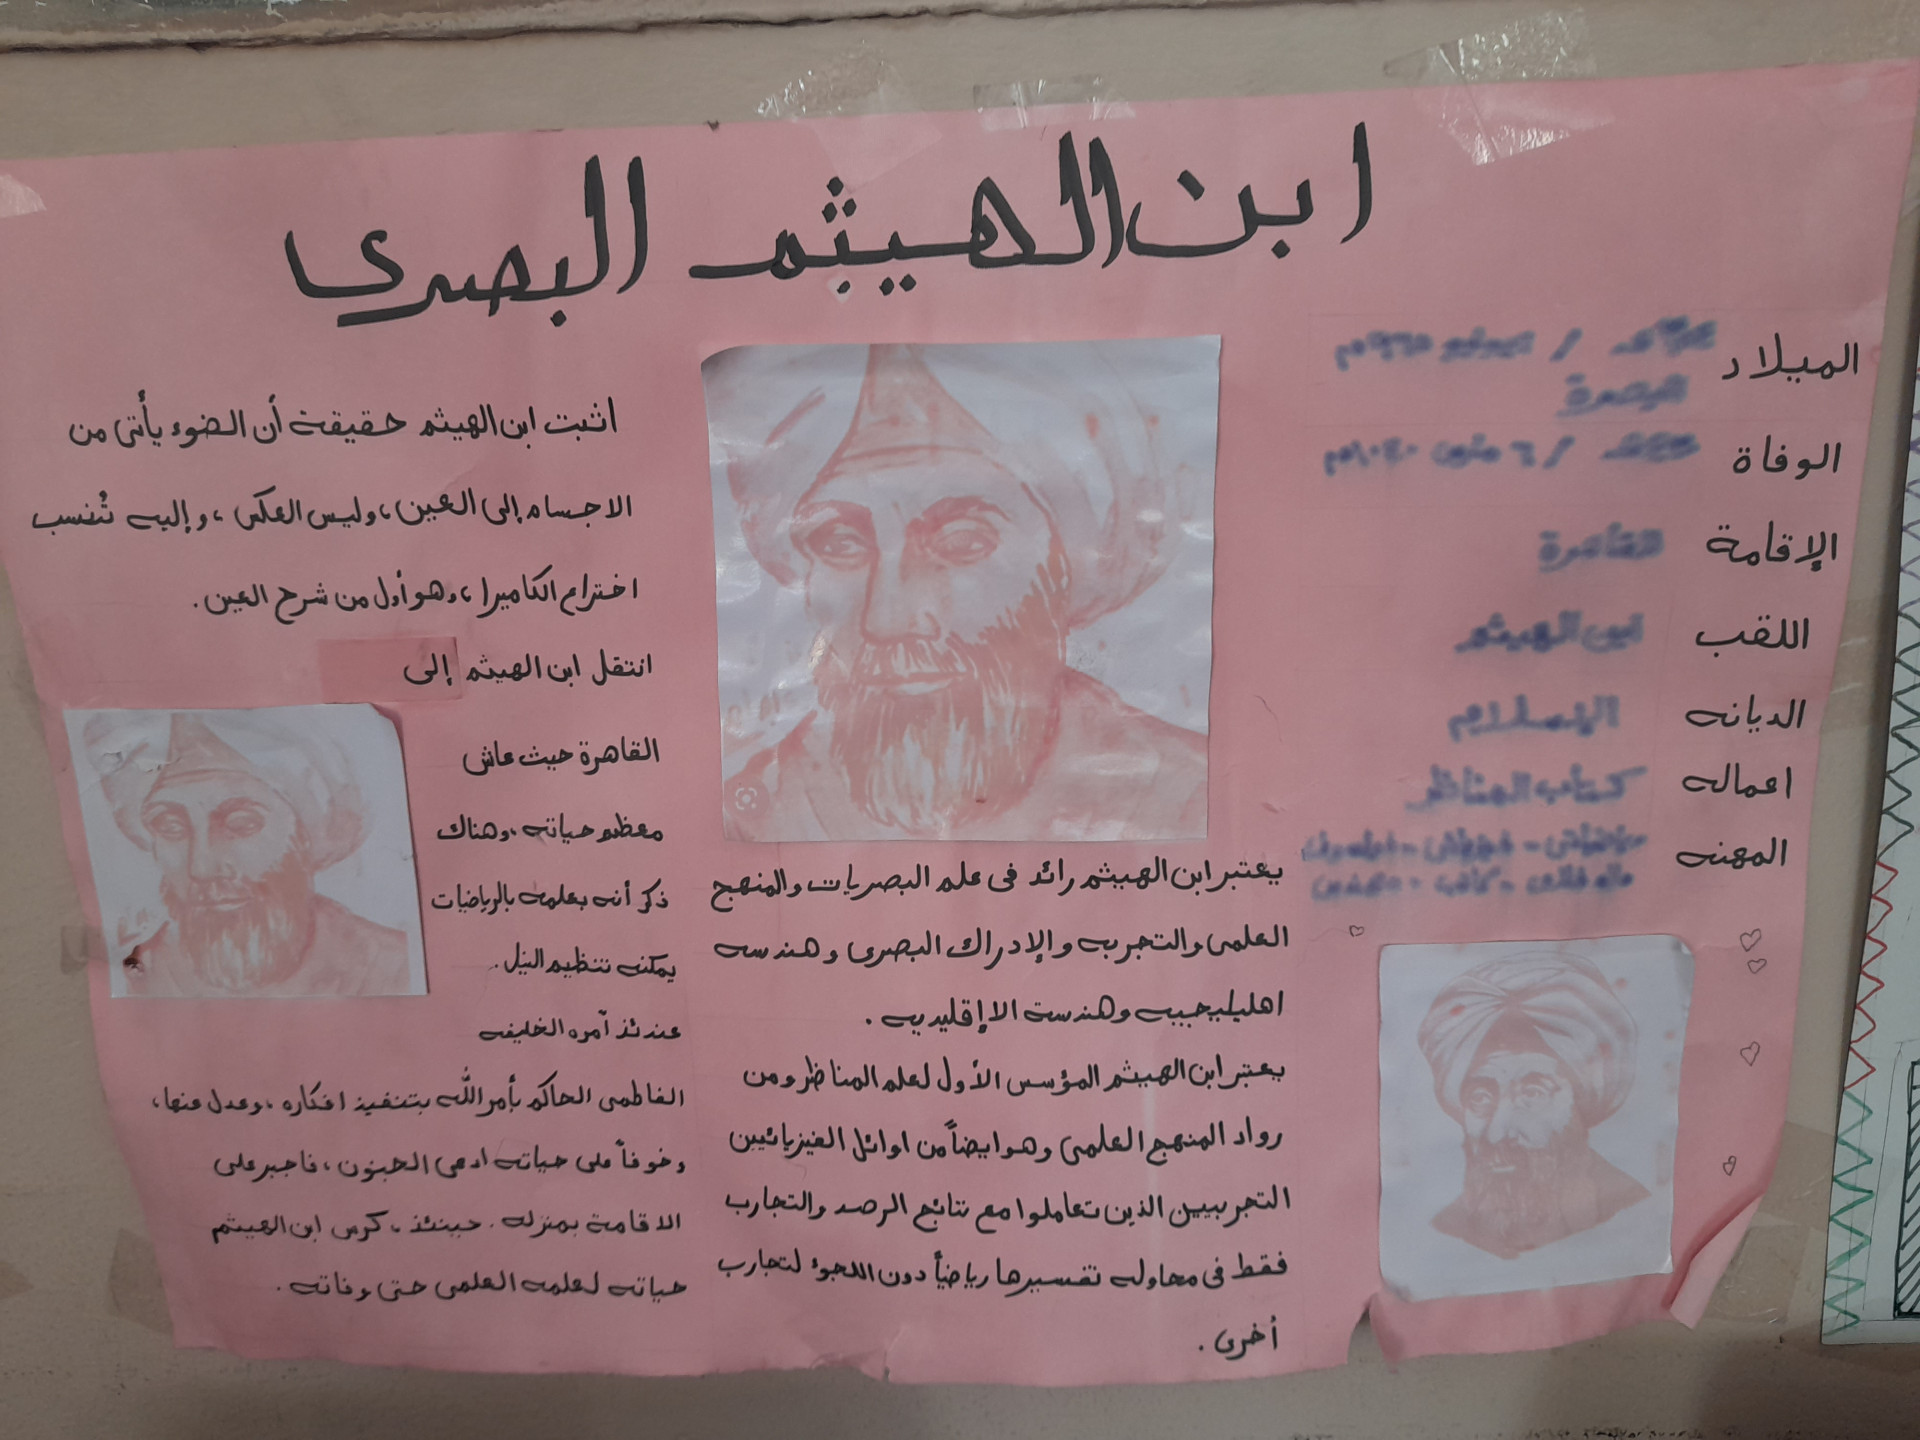 ابن الهيثم البصرى
الميلاد
البصرة
الوفاة
الإقامة القاهرة
اللقب ابن الهيثم
الديانه الإسلام
اعماله كتاب المناظر
المهنه
يعتبر ابن الهيثم رائد فى علم البصريات والمنهج
العلمى والتجربه والإدراك البصرى وهندسه
اهليليجييه وهندسة الاإقليديه .
يعتبر ابن الهيثم المؤسس الأول لعلم المناظر ومن
رواد المنهج العلمى وهو ايضاً من اوائل الفيزيائيين
التجربيين الذين تعاملوا مع نتائج الرصد والتجارب
فقط فى محاوله تفسيرها رياضياً دون اللجوء لتجارب
أخرى .
اثبت ابن الهيثم حقيقة أن الضوء يأتى من
الاجسام إلى العين ، وليس العكس ، وإليه تُنسب
اختراع الكاميرا ، وهو أول من شرح العين .
انتقل ابن الهيثم إلى
القاهرة حيث عاش
معظم حياته ، وهناك
ذكر أنه بعلمه بالرياضيات
يمكنه تنظيم النيل .
عندئذ آمره الخليفه
الفاطمى الحاكم بأمر الله بتنفيذ افكاره ، وعدل عنها ،
وخوفاً على حياته ادعى الجنون ، فاجبر على
الاقامة بمنزله . حينئذ ، كرس ابن الهيثم
حياته لعلمه العلمى حتى وفاته .